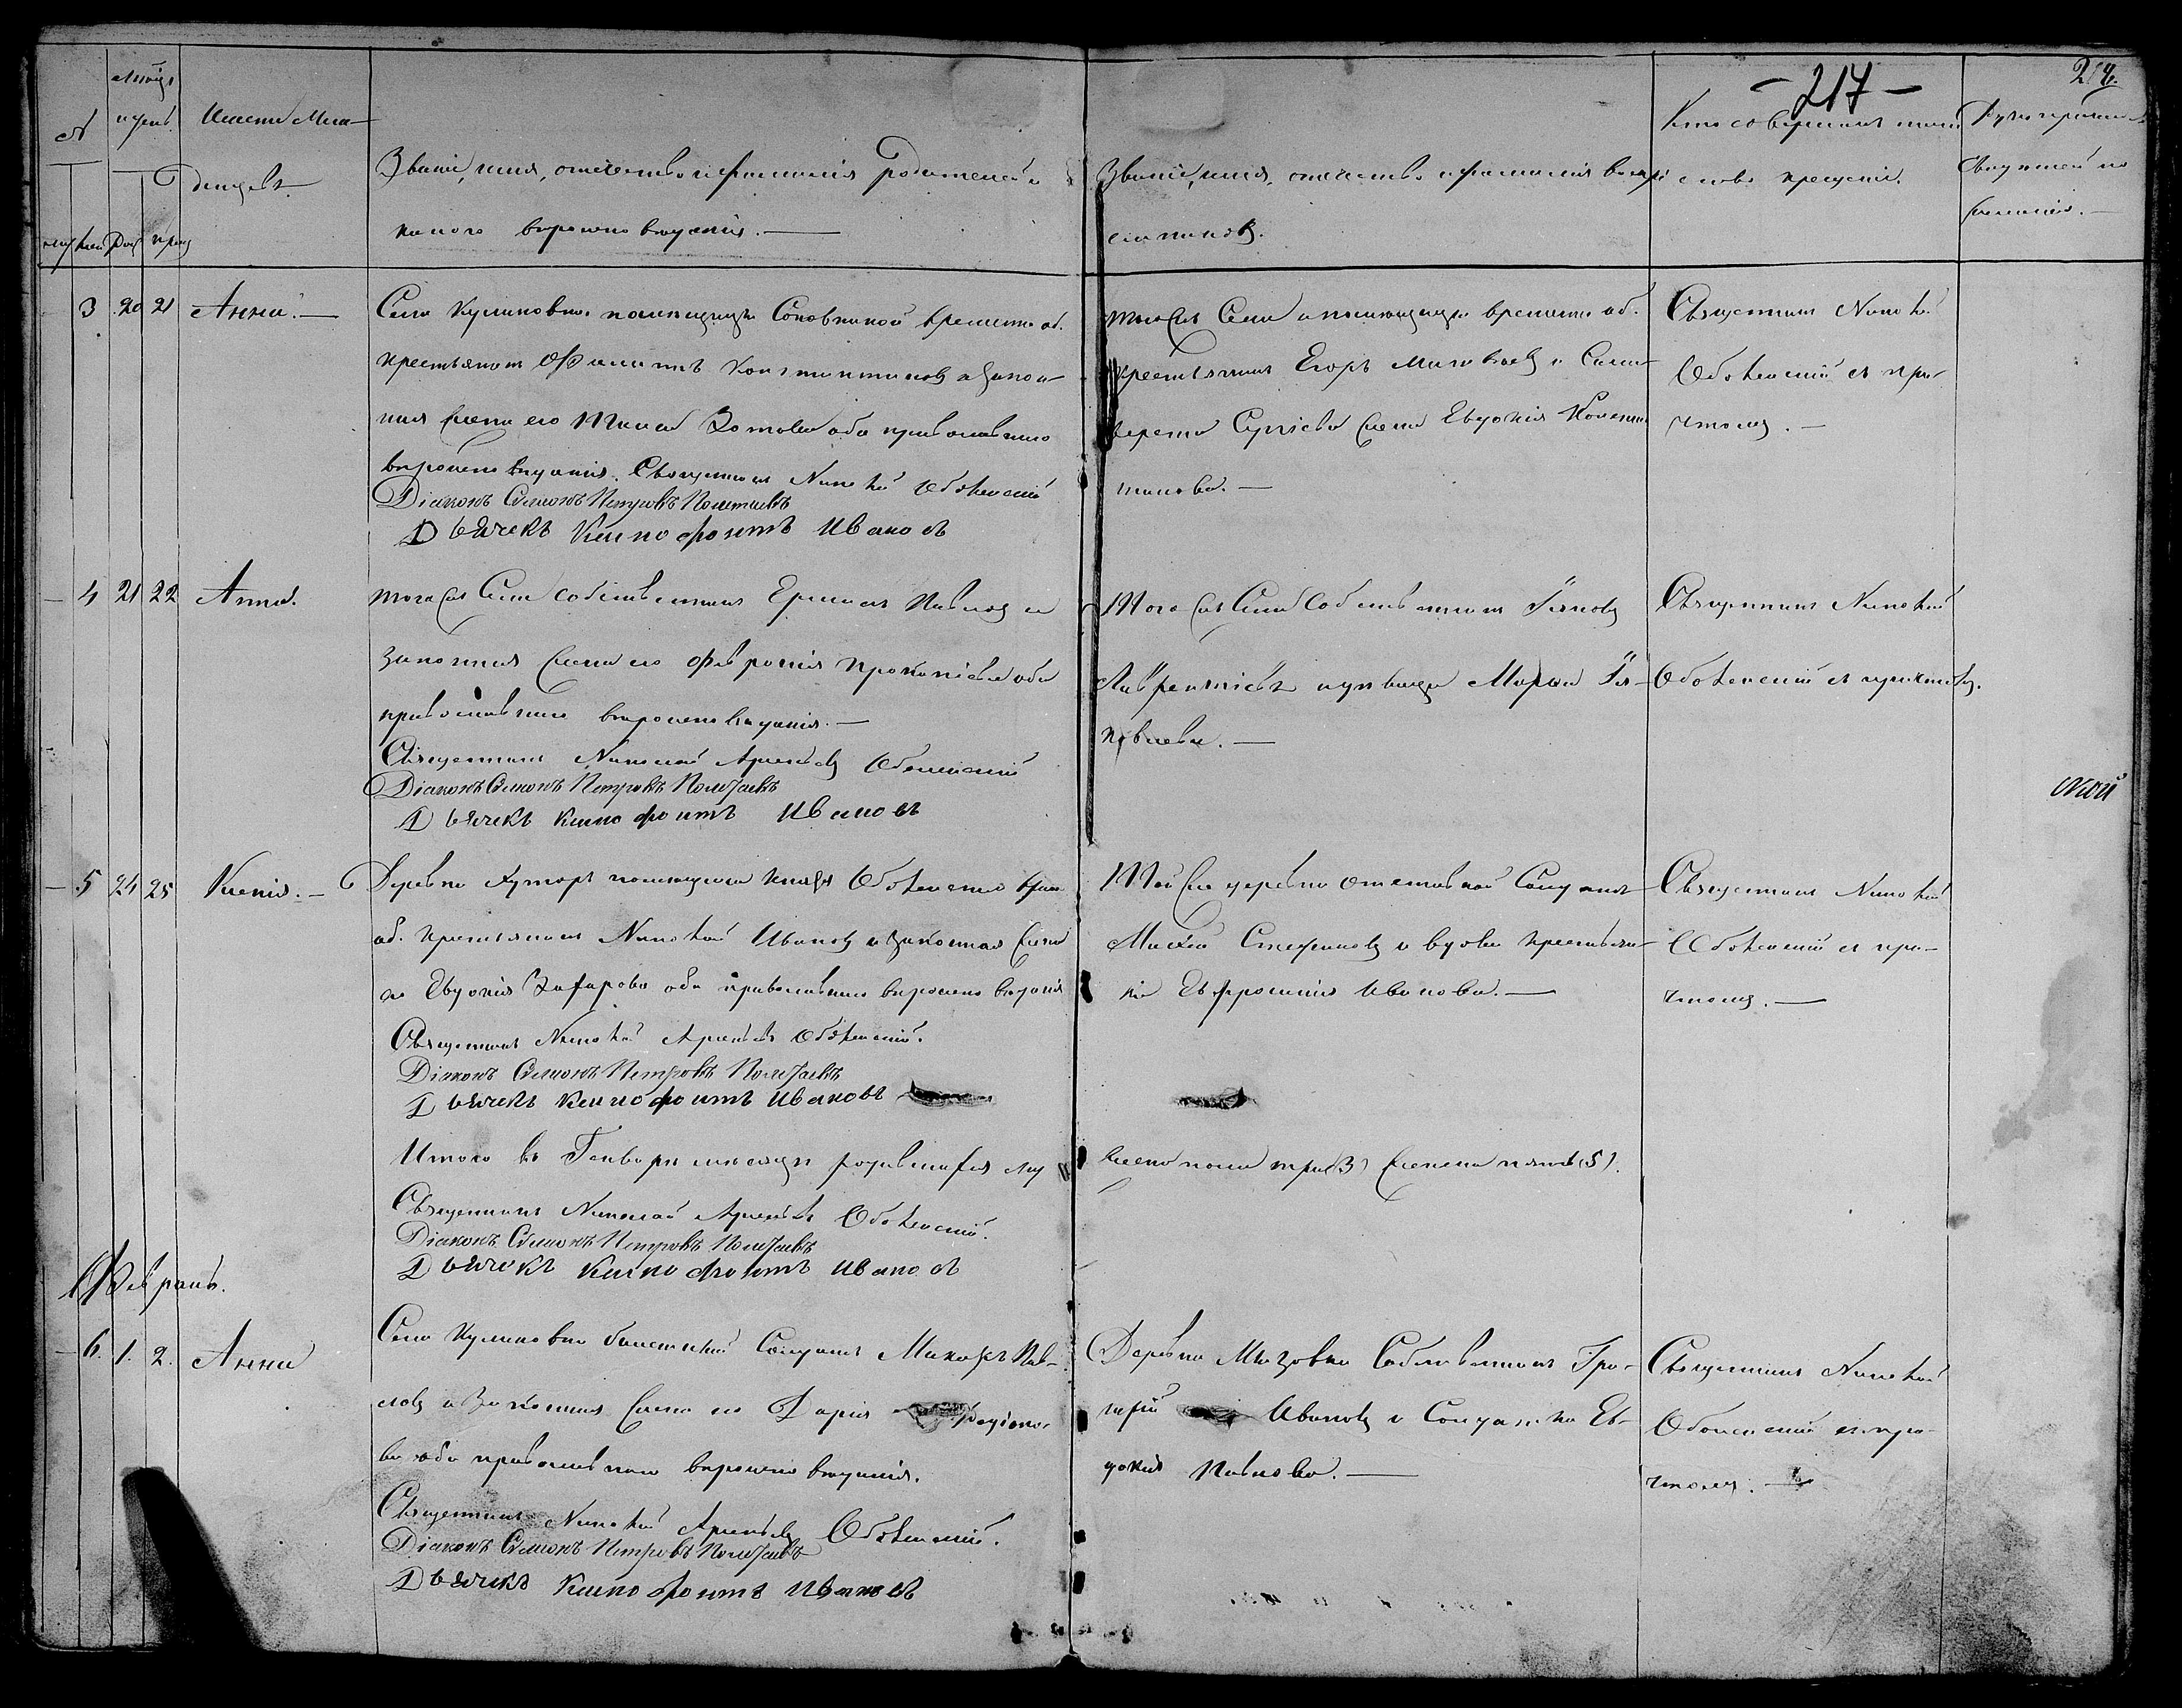 - 217 -
Мѣсяц
и день
Имена Мла-
денцевъ
Званіе, имя, отчество и фамилія родителей и
какого вѣроисповѣданія. —
Званіе, имя, отчество и фамилія воспрі
емниковъ.
Кто совершалъ таин
ство крещенія.
Рукоприклад
свидѣтелей по
желанію. —
3 20 21 Анна. —
Села Куликовки помѣщицы временно об.
крестьянинъ Филиппъ Константиновъ и закон-
ная жена его Зотова оба православнаго
вѣроисповѣданія. Священникъ Николай Оболенскій
Діаконъ Симонъ Петровъ Полетаевъ
Дьячекъ Ксинофонтъ Ивановъ
тогоже Села и помѣщицы временно об.
крестьянинъ Егоръ Матвѣевъ и
Сергіева жена Евдокія Констан
тинова. —
Священникъ Николай
Оболенскій съ при-
чтомъ. —
4 21 22 Анна.
тогоже Села Собственникъ Ермилъ Павловъ и
законная жена его Февронія Прокопіева оба
православнаго вѣроисповѣданія. —
Священникъ Николай Арсеньевъ Оболенскій
Діаконъ Симонъ Петровъ Полетаевъ
Дьячекъ Ксинофонтъ Ивановъ
Тогоже Села Собственникъ Іяковъ
Лаврентіевъ и дѣвица Марья Iя-
ковлева. —
Священникъ Николай
Оболенскій съ причтомъ.
5 24 25 Ксенія. —
Деревни Хуторъ помѣщика Князя Оболенскаго врем.
об. крестьянинъ Николай Ивановъ и законная жена
его Евдокія Захарова оба православнаго вѣроисповѣданія
Священникъ Николай Арсеньевъ Оболенскій.
Діаконъ Симонъ Петровъ Полетаевъ
Дьячекъ Ксинофонтъ Ивановъ
Той же деревни отставной Солдатъ
Стефановъ и вдова крестьян-
ка Евфросинія Иванова. —
Священникъ Николай
Оболенскій съ при-
чтомъ. —
Итого въ Генварѣ мѣсяцѣ родившихся муж
жеска пола три (3) женска пять (5).
Священникъ Николай Арсеньевъ Оболенскій.
Діаконъ Симонъ Петровъ Полетаевъ
Дьячекъ Ксинофонтъ Ивановъ
Февраль.
6. 1. 2. Анна
Села Куликовки билетный Солдатъ Макаръ Пав-
ловъ и Законная жена его Дарія Родіоно-
ва оба православнаго вѣроисповѣданія.
Священникъ Николай Арсеньевъ Оболенскій.
Діаконъ Симонъ Петровъ Полетаевъ
Дьячекъ Ксинофонтъ Ивановъ
Деревни Собственникъ Гри-
горій Ивановъ и Солдатка Ев-
докія Павлова. —
Священникъ Николай
Оболенскій съ при-
чтомъ. —